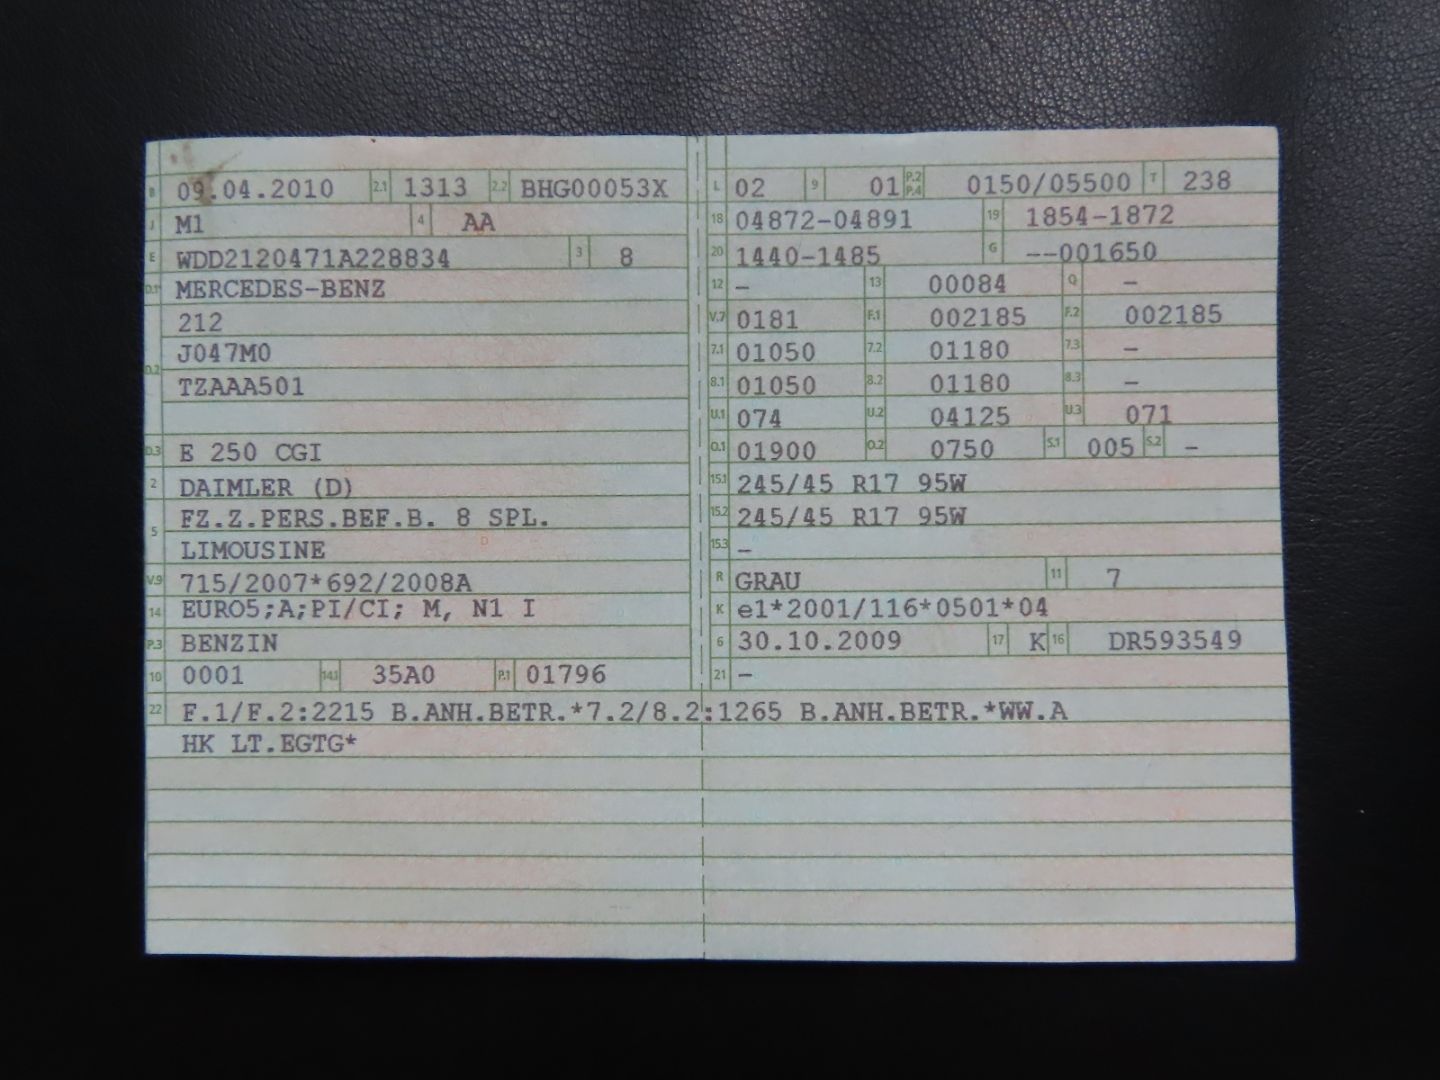 B 09.04.2010 2.1 1313 2.2 BHG00053X
J M1 4 AA
E WDD2120471A228834 3 8
D.1 MERCEDES-BENZ
212
J047M0
D.2
TZAAA501
D.3 E 250 CGI
2 DAIMLER (D)
FZ.Z.PERS.BEF.B. 8 SPL.
5
LIMOUSINE
V.9 715/2007*692/2008A
14 EURO5;A;PI/CI; M, N1 I
P.3 BENZIN
10 0001 14.1 35A0 P.1 01796
L 02 9 01 P.2 P.4 0150/05500 T 238
18 04872-04891 19 1854-1872
20 1440-1485 G --001650
12 - 13 00084 Q -
V.7 0181 F.1 002185 F.2 002185
7.1 01050 7.2 01180 7.3 -
8.1 01050 8.2 01180 8.3 -
U.1 074 U.2 04125 U.3 071
O.1 01900 O.2 0750 S.1 005 S.2 -
15.1 245/45 R17 95W
15.2 245/45 R17 95W
15.3 -
R GRAU 11 7
K e1*2001/116*0501*04
6 30.10.2009 17 K 16 DR593549
21 -
22 F.1/F.2:2215 B.ANH.BETR.*7.2/8.2:1265 B.ANH.BETR.*WW.A
HK LT.EGTG*